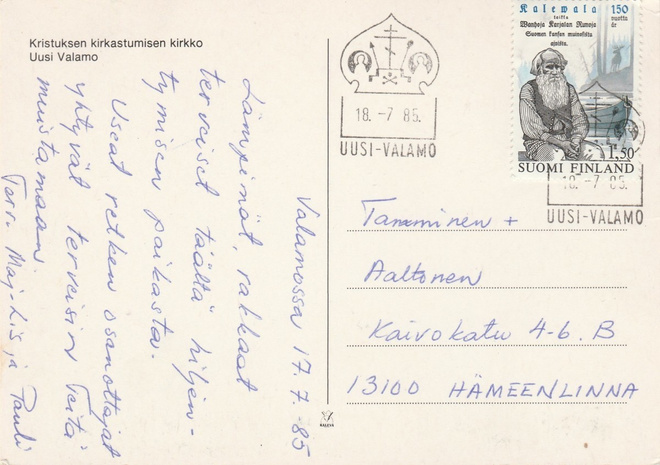 Kristuksen kirkastumisen kirkko
Uusi Valamo
Valamossa 17.7.-85
Lämpimät, rakkaat
terveiset täältä hiljen-
tymisen paikasta.
Useat retken osanottajat
yhtyvät terveisin Teitä
muistamaan.
Maj-Lis ja Pauli
18.-7 85.
UUSI-VALAMO
Kalewala
taikka
Wanhoja Karjalan Runoja
Suomen kansan muinosista
ajoista.
150
vuotta
år
1,50
SUOMI FINLAND
18.-7 85.
UUSI-VALAMO
Tamminen +
Aaltonen
Kaivokatu 4-6. B
13100 HÄMEENLINNA
KALEVA